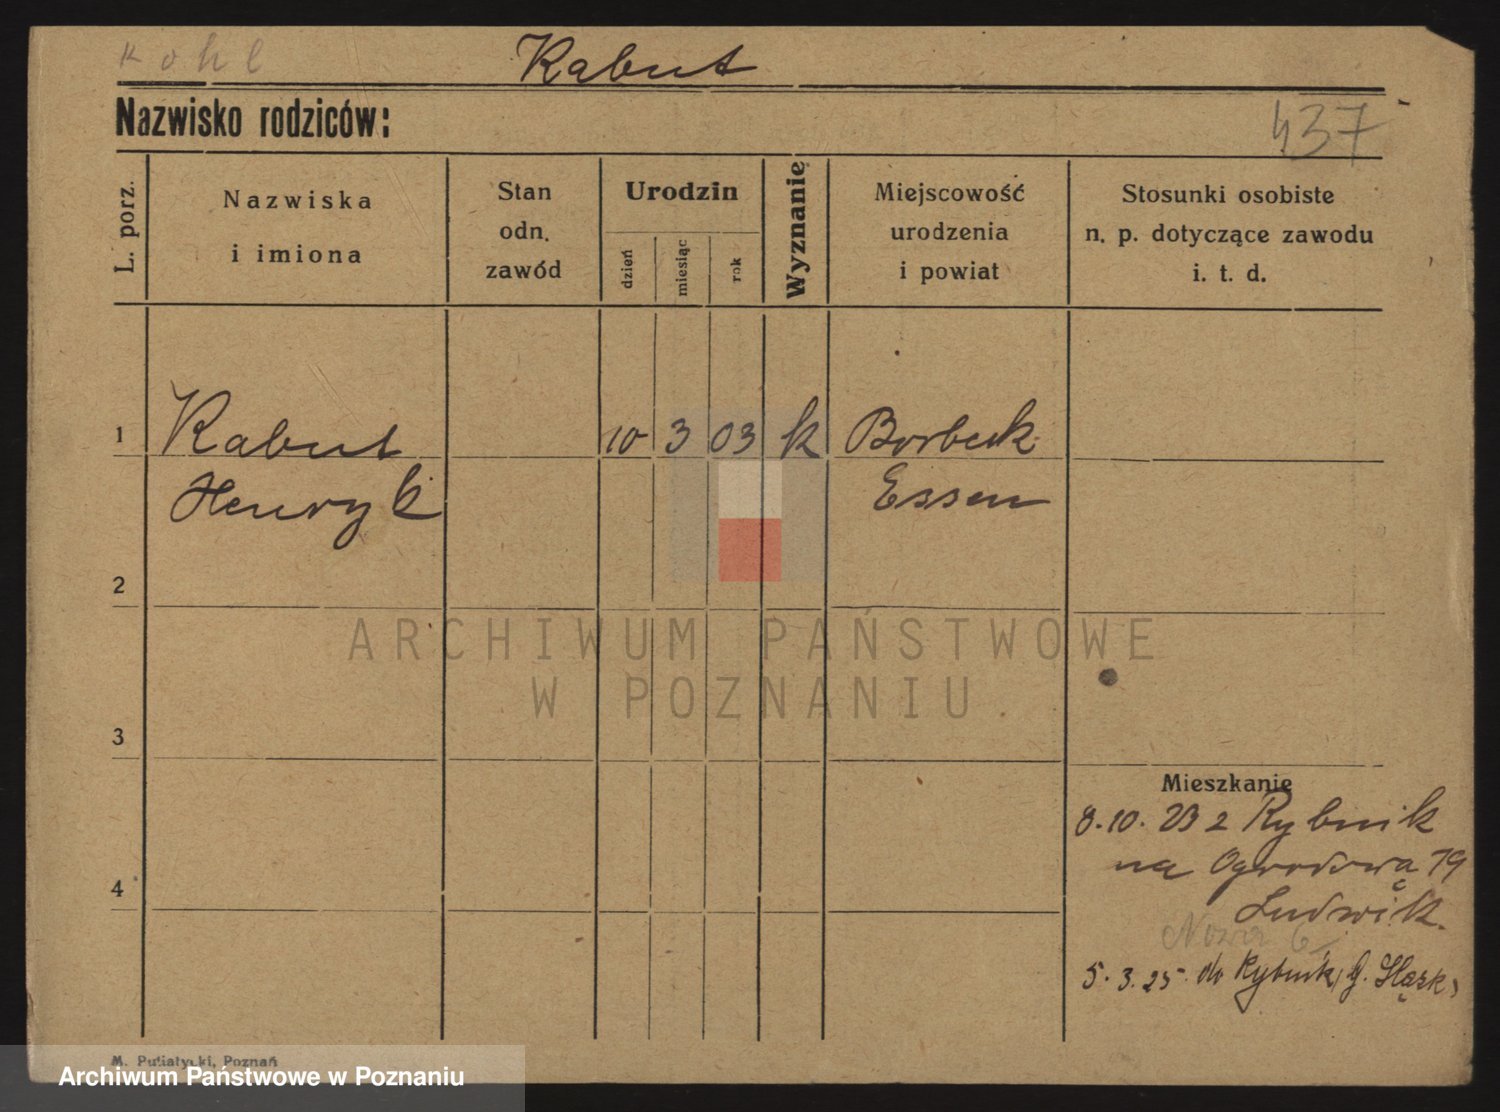 Kohl
Kabut
Nazwisko rodziców:
437
L. porz.
Nazwiska
i imiona
Stan
odn.
zawód
Urodzin
dzień
miesiąc
rok
Wyznanię
Miejscowość
urodzenia
i powiat
Stosunki osobiste
n. p. dotyczące zawodu
i. t. d.
1 Kabut 10 3 03 k Borbeck
Henryk Essen
2
ARCHIWUM PAŃSTWOWE
W POZNANIU
3
Mieszkanie
8.10.23 z Rybnik
na Ogrodowa 19
4
Ludwik.
Nowa 6
5.3.25 do Rybnik, G. Śląsk,
M. Putiatycki, Poznań
Archiwum Państwowe w Poznaniu